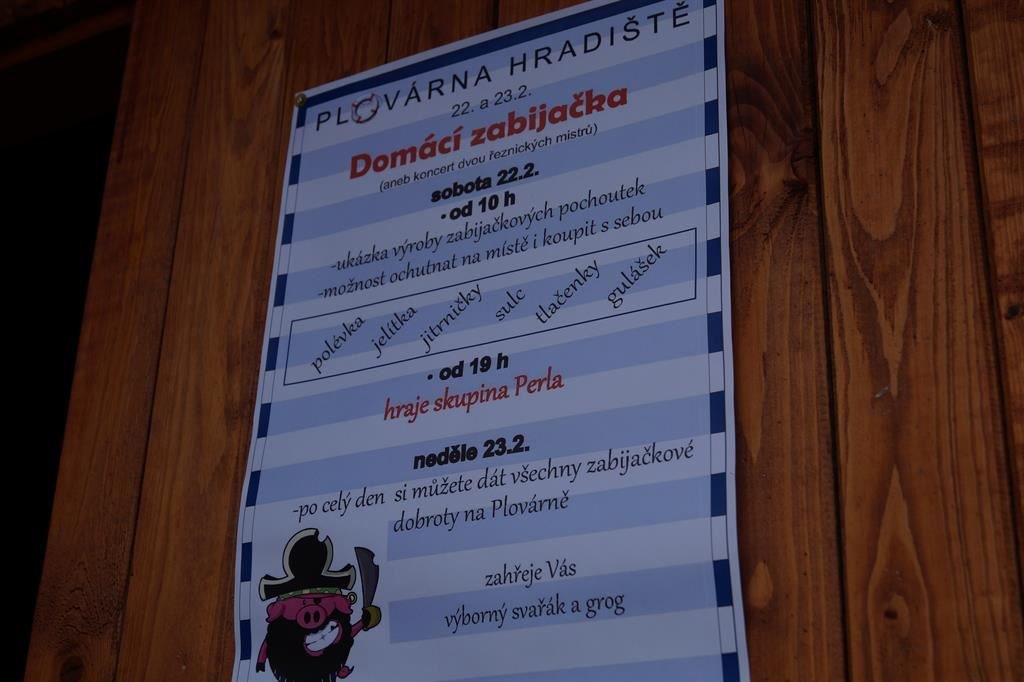 PLOVÁRNA HRADIŠTĚ
22. a 23.2.
Domácí zabijačka
(aneb koncert dvou řeznických mistrů)
sobota 22.2.
· od 10 h
-ukázka výroby zabijačkových pochoutek
-možnost ochutnat na místě i koupit s sebou
polévka jelítka jitrničky sulc tlačenky gulášek
· od 19 h
hraje skupina Perla
neděle 23.2.
-po celý den si můžete dát všechny zabijačkové
dobroty na Plovárně
zahřeje Vás
výborný svařák a grog